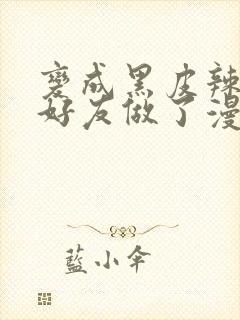 變成黑皮辣
好友做了漫
藍小傘